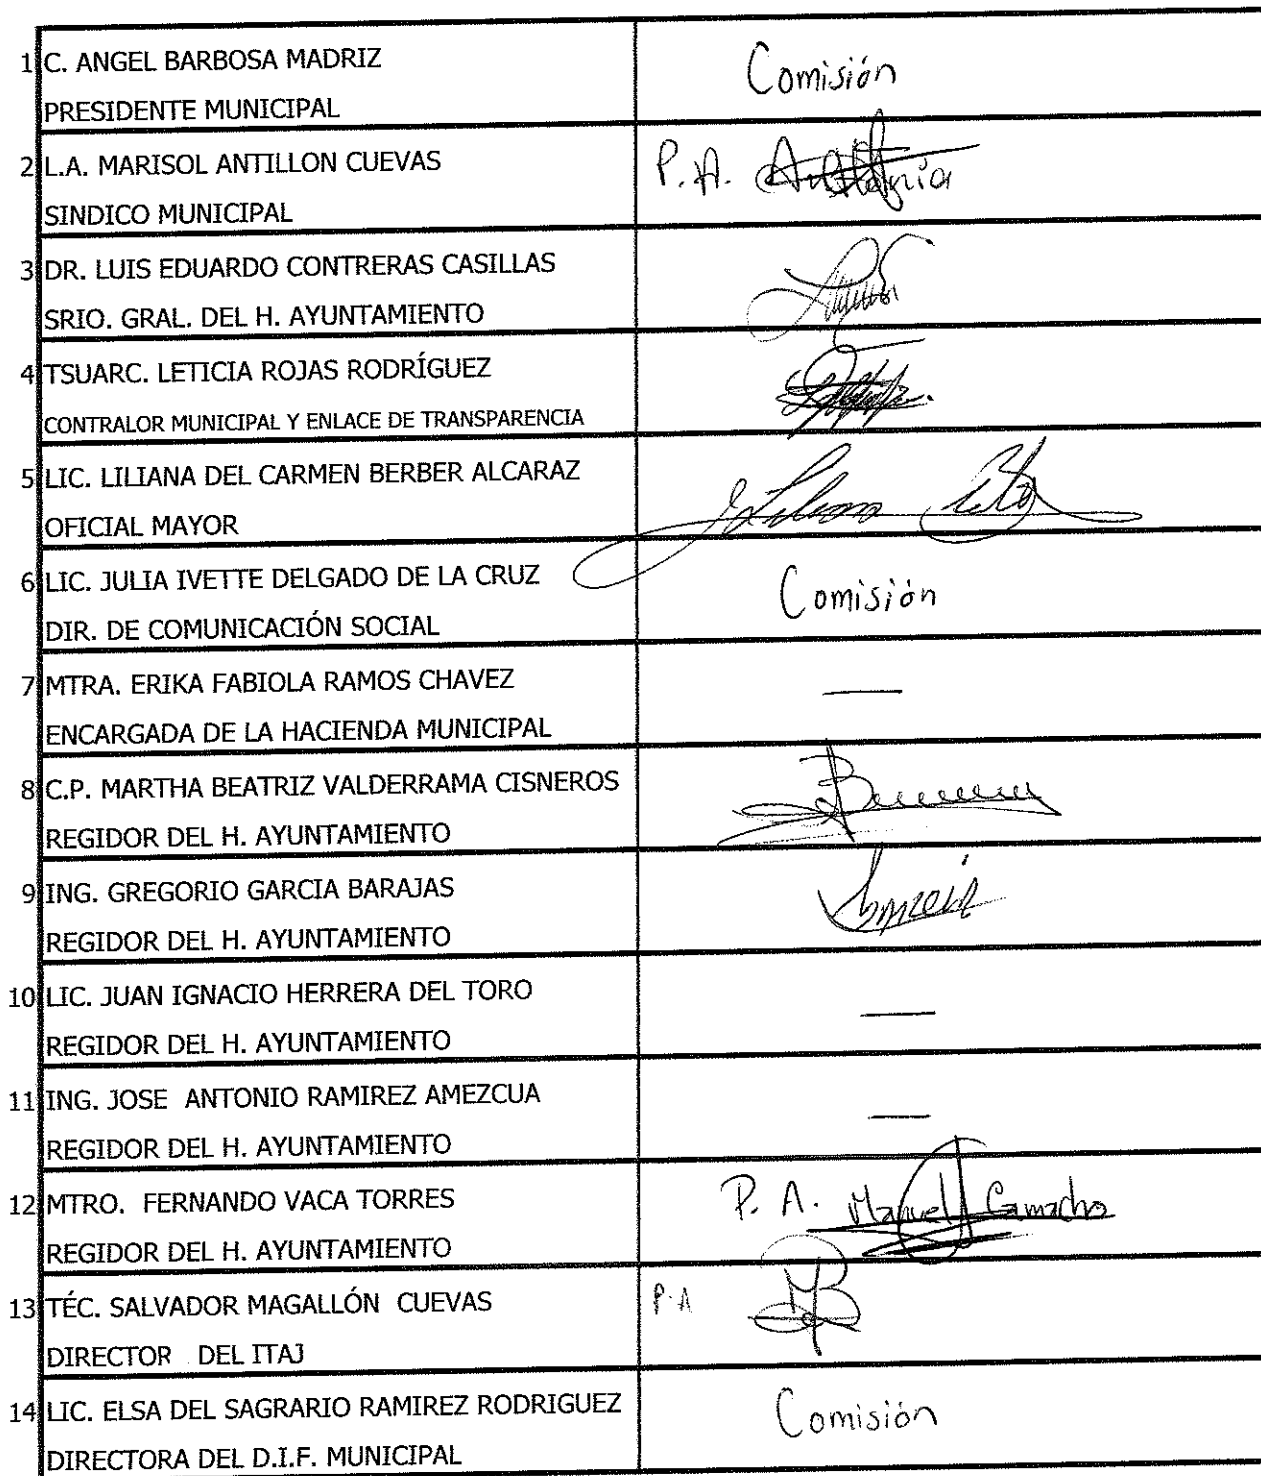 1 C. ANGEL BARBOSA MADRIZ
PRESIDENTE MUNICIPAL
Comisión
2 L.A. MARISOL ANTILLON CUEVAS
SINDICO MUNICIPAL
P.A.
3 DR. LUIS EDUARDO CONTRERAS CASILLAS
SRIO. GRAL. DEL H. AYUNTAMIENTO
4 TSUARC. LETICIA ROJAS RODRÍGUEZ
CONTRALOR MUNICIPAL Y ENLACE DE TRANSPARENCIA
5 LIC. LILIANA DEL CARMEN BERBER ALCARAZ
OFICIAL MAYOR
6 LIC. JULIA IVETTE DELGADO DE LA CRUZ
DIR. DE COMUNICACIÓN SOCIAL
Comisión
7 MTRA. ERIKA FABIOLA RAMOS CHAVEZ
ENCARGADA DE LA HACIENDA MUNICIPAL
—
8 C.P. MARTHA BEATRIZ VALDERRAMA CISNEROS
REGIDOR DEL H. AYUNTAMIENTO
9 ING. GREGORIO GARCIA BARAJAS
REGIDOR DEL H. AYUNTAMIENTO
10 LIC. JUAN IGNACIO HERRERA DEL TORO
REGIDOR DEL H. AYUNTAMIENTO
—
11 ING. JOSE ANTONIO RAMIREZ AMEZCUA
REGIDOR DEL H. AYUNTAMIENTO
—
12 MTRO. FERNANDO VACA TORRES
REGIDOR DEL H. AYUNTAMIENTO
P. A. Manuel Camacho
13 TÉC. SALVADOR MAGALLÓN CUEVAS
DIRECTOR DEL ITAJ
P.A
14 LIC. ELSA DEL SAGRARIO RAMIREZ RODRIGUEZ
DIRECTORA DEL D.I.F. MUNICIPAL
Comisión